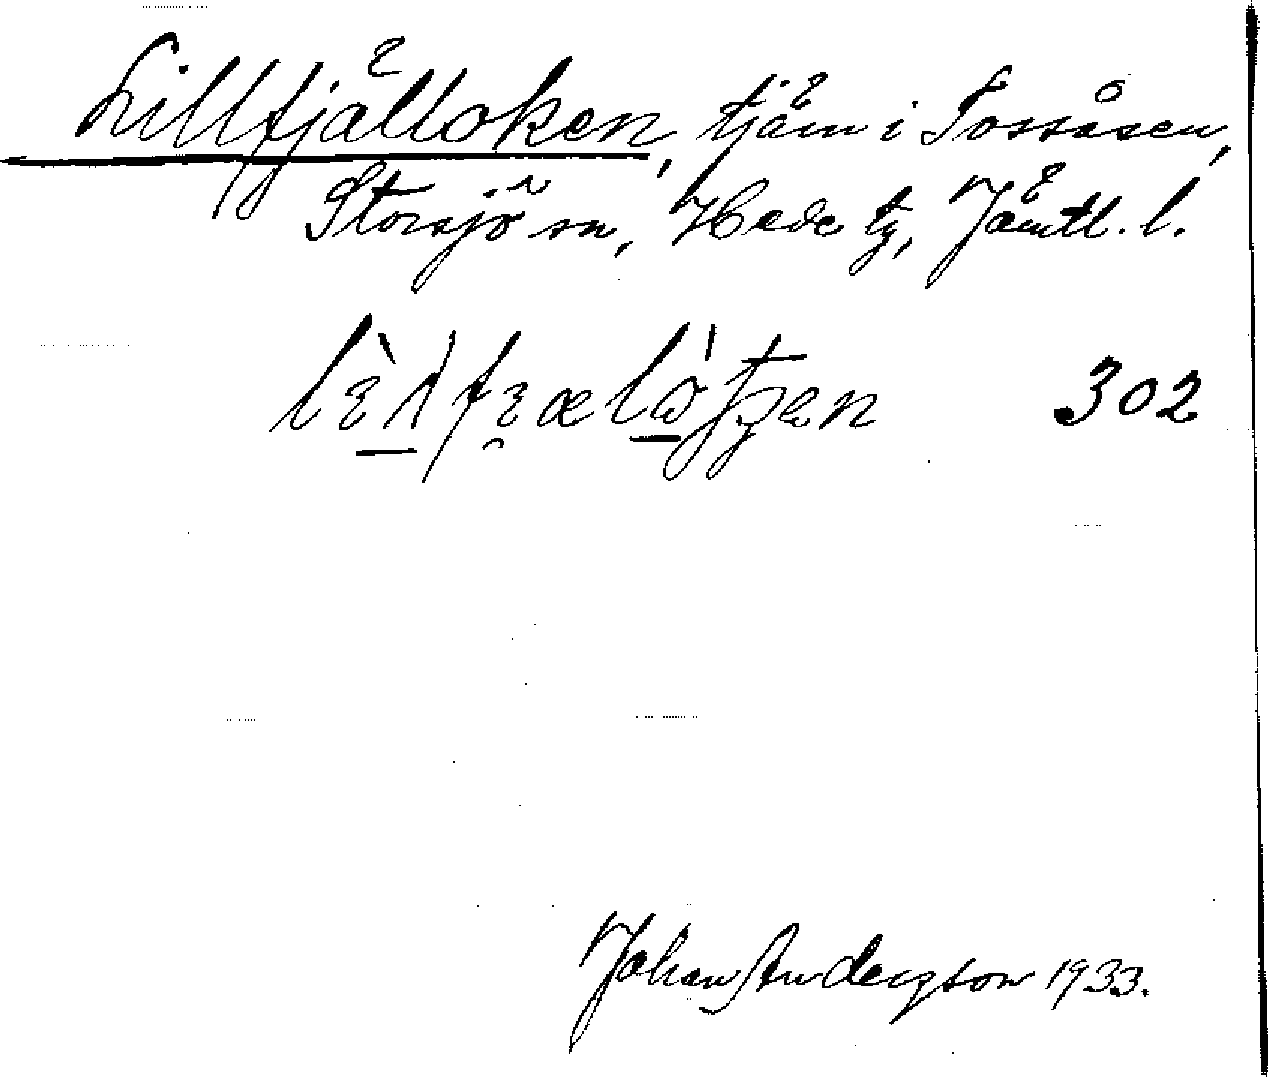 Lillfjälloken, tjärn i Fossåsen,
Storsjö sn, Hede tg, Jämtl. l.
302
Johan Anderzson 1933.